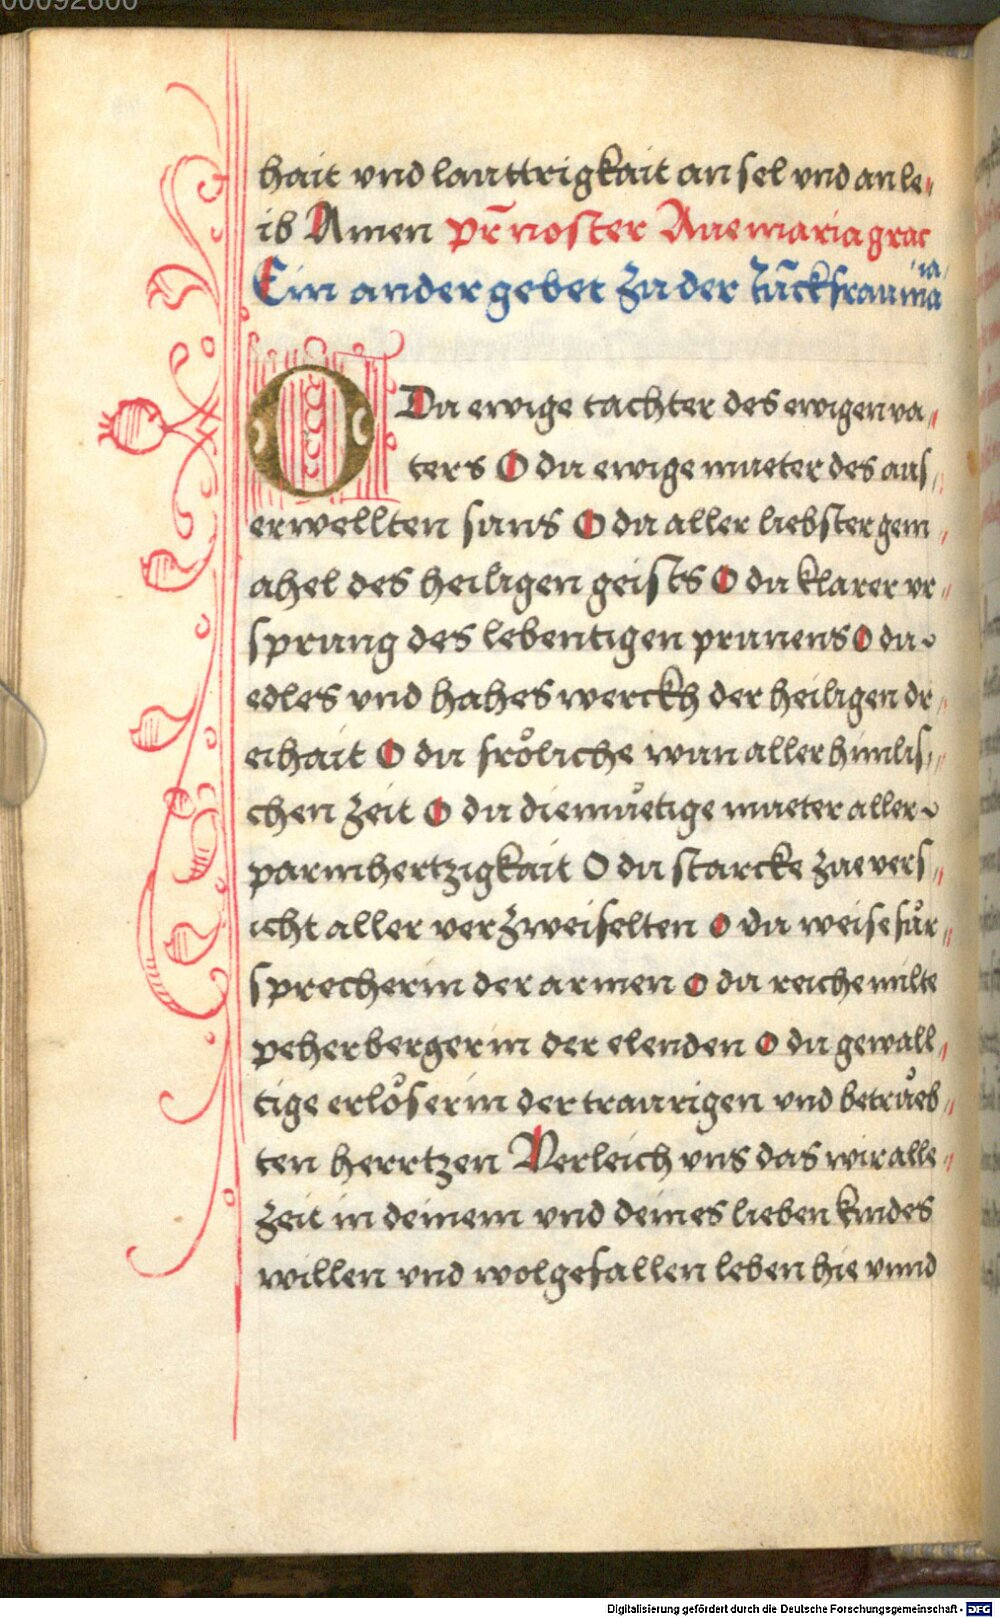 00092600
hait vnd lauttrigkait an sel vnd an le,
ib Amen pr̄ noster Aue maria grac
ia
Ein ander gebet zu der Ju̅ckfrau ma
O Du ewige tachter des ewigen va,
ters O du ewige mueter des aus,
erwellten suns O du aller liebster gem,
ahel des heiligen geists O du klarer vr,
sprung des lebentigen prunens O du
edles vnd hahes werckh der heiligen dr,
eihait O du frőliche wun aller himlis,
chen zeit O du diemuͤetige mueter aller
parmhertzigkait O du starcke zuevers,
icht aller verzweifelten O du weise fuͤr,
sprecherin der armen O du reiche milte
peherbergerin der elenden O du gewall,
tige erlőserin der traurigen vnd betruͤeb,
ten herrtzen Verleich vns das wir alle,
zeit in deinem vnd deines lieben kindes
willen vnd wolgefallen leben hie vnnd
Digitalisierung gefördert durch die Deutsche Forschungsgemeinschaft - DFG